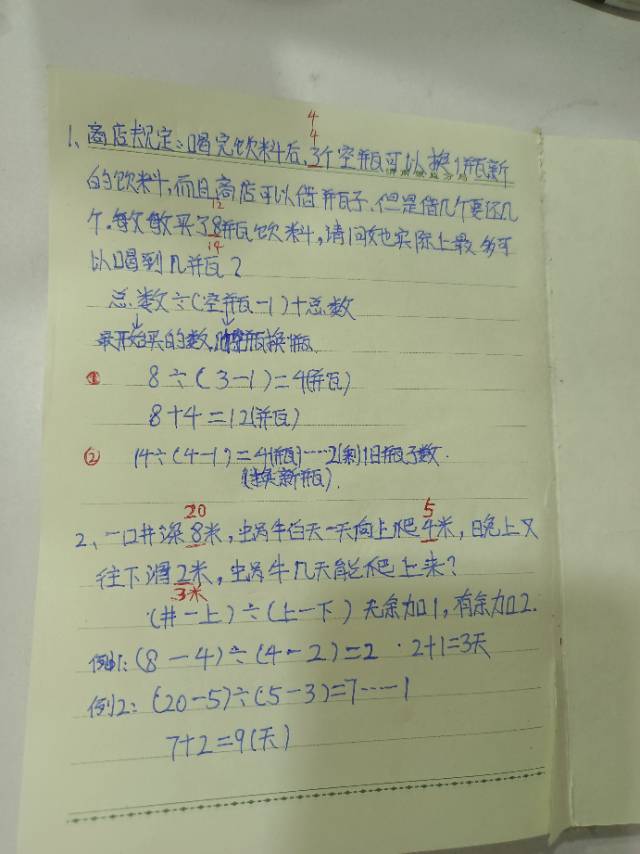 4
4
1、商店规定:喝完饮料后,3个空瓶可以换1瓶新
的饮料,而且商店可以借瓶子.但是借几个要还几
12
个.每次敏买了8瓶饮料,请问她实际上最多可
14
以喝到几瓶?
总数÷(空瓶-1)+总数
最开始买的数,
① 8÷(3-1)=4(瓶)
8+4=12(瓶)
② 14÷(4-1)=4(瓶)……2(剩)旧瓶子数.
(换新瓶).
20 5
2、一口井深8米,蜗牛白天一天向上爬4米,晚上又
往下滑2米,蜗牛几天能爬上来?
3米
(井-上)÷(上-下) 无余加1,有余加2.
例1:(8-4)÷(4-2)=2 . 2+1=3天
例2:(20-5)÷(5-3)=7……1
7+2=9(天)